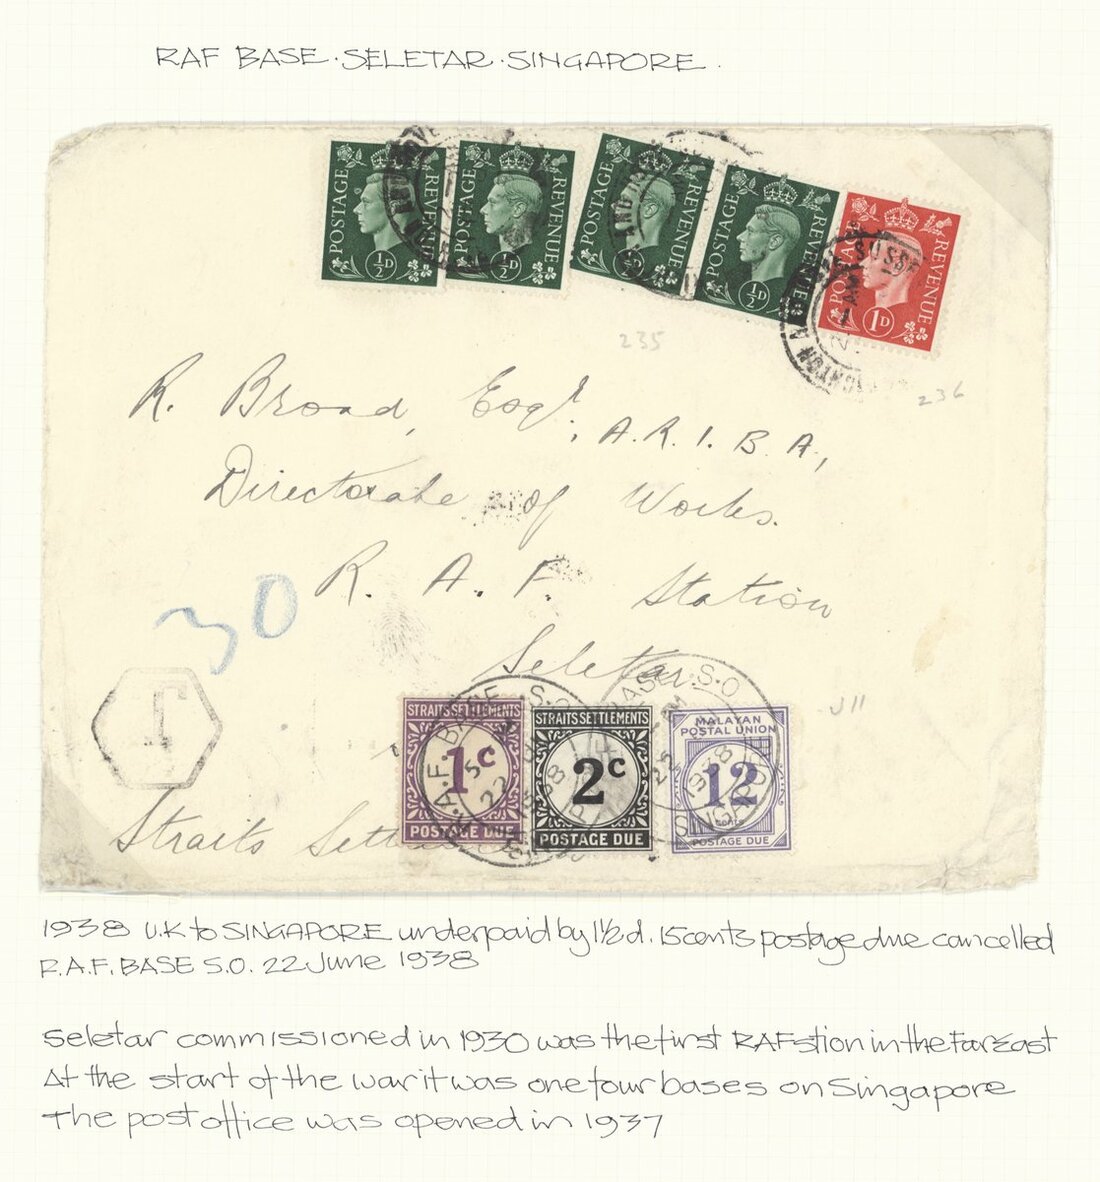 RAF BASE · SELETAR · SINGAPORE .
POSTAGE REVENUE ½D
POSTAGE REVENUE ½D
POSTAGE REVENUE ½D
POSTAGE REVENUE ½D
POSTAGE REVENUE 1D
SUSSE
235
236
R. Broad, Esqr., A.R.I.B.A.,
Directorate of Works.
R. A. F. Station
Seletar.
30
T
J11
STRAITS SETTLEMENTS 1c POSTAGE DUE
STRAITS SETTLEMENTS 2c POSTAGE DUE
MALAYAN POSTAL UNION 12 POSTAGE DUE
R.A.F. BASE S.O
22 1938
BASE S.O
22 1938
SINGAPO
Straits Sett
1938 U.K to SINGAPORE underpaid by 1½d. 15cents postage due cancelled
R.A.F. BASE S.O. 22 June 1938
Seletar commissioned in 1930 was the first RAF stion in the Far East
At the start of the war it was one four bases on Singapore
The post office was opened in 1937